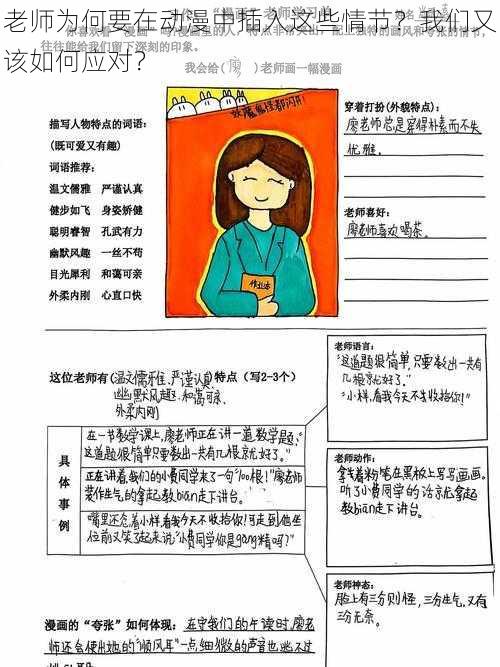 老师为何要在动漫中插入这些情节？我们又
该如何应对？
我会给(廖)老师画一幅漫画
描写人物特点的词语：
(既可爱又有趣)
词语推荐：
温文儒雅 严谨认真
健步如飞 身姿矫健
聪明睿智 孔武有力
幽默风趣 一丝不苟
目光犀利 和蔼可亲
外柔内刚 心直口快
妖魔鬼怪都闪开!
作业本
穿着打扮(外貌特点)：
廖老师总是穿得朴素而不失
优雅.
老师喜好：
廖老师喜欢喝茶.
这位老师有(温文儒雅、严谨认真、
幽默风趣、和蔼可亲、
外柔内刚
)特点（写2-3个）
具体事例
在一节数学课上,廖老师正在讲一道数学题:
"这道题很简单只要数出一共有几根就好了。"
正在讲着,我们的小费同学来了一句"100根!"廖老师
装作生气的拿起教bian走下讲台.
嘴里还念着小样,看我今天不收拾你!可走到他坐
位前又笑了起来说:"小费同学你是gang精吗?"
老师语言：
"这道题很简单,只要数出一共有
几根就好了."
"小样,看我今天不收拾你!"
老师动作：
拿着粉笔在黑板上写写画画.
听了小费同学的话就拿起
教bian走下讲台.
老师神态：
脸上有三分则怪,三分生气,又有
三分无奈.
漫画的“夸张”如何体现：在守我们的午读时,廖老
师还会使出她的"顺风耳"一点细微的声音也逃不过